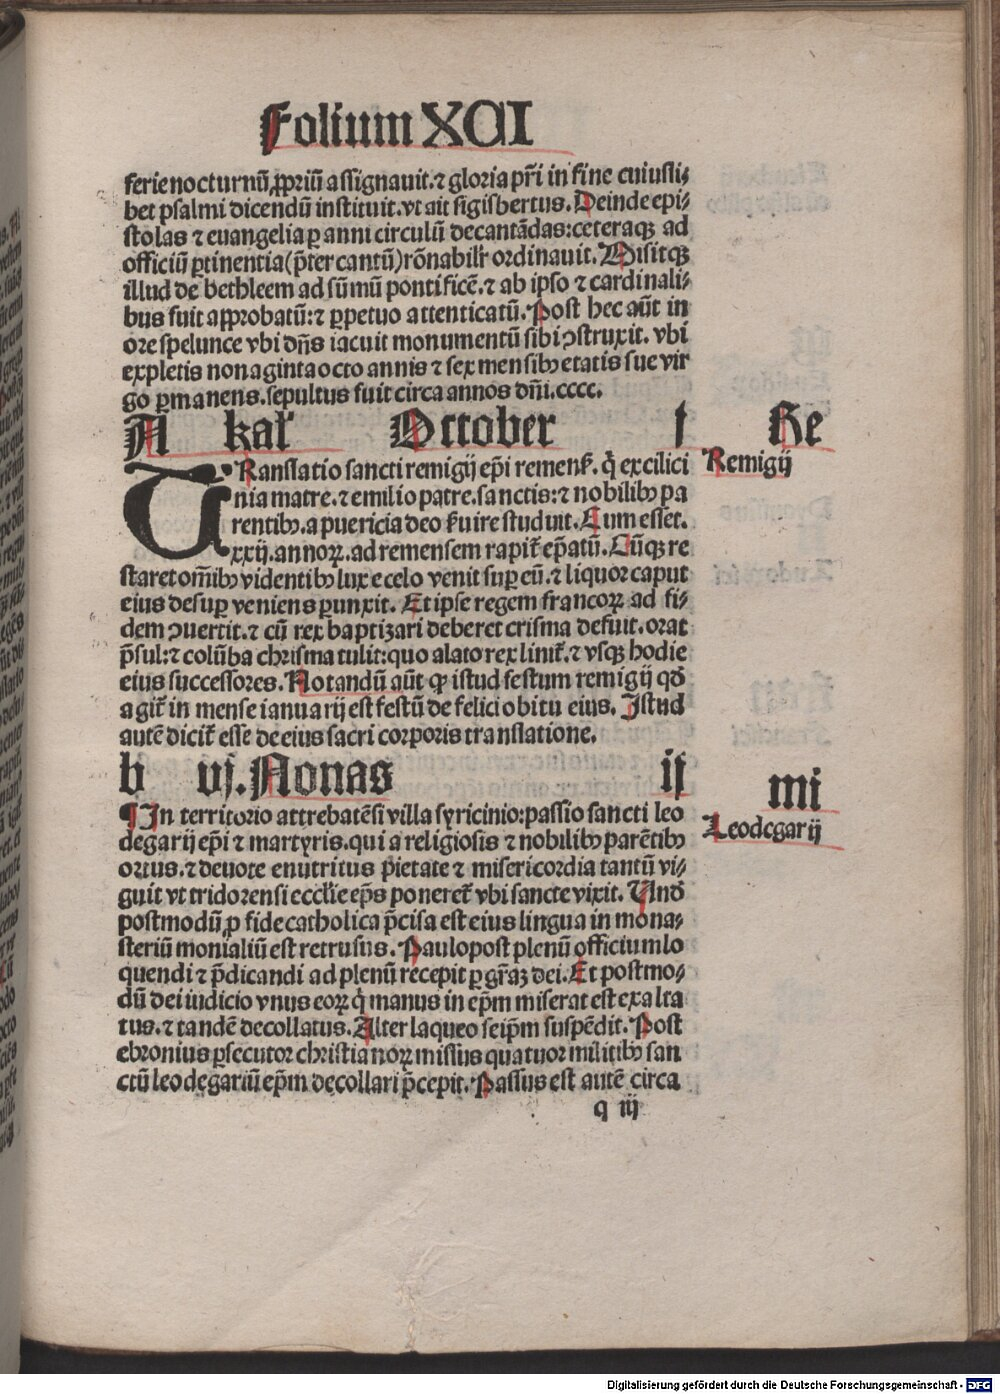 Folium XCI
ferie nocturnū ꝓpriū assignauit. ⁊ gloria pr̄i in fine cuiusli⸗
bet psalmi dicendū instituit. vt ait sigisbertus. Deinde epi⸗
stolas ⁊ euangelia ꝑ anni circulū decantādas: ceteraqꝫ ad
officiū ꝑtinentia (p̄ter cantū) rōnabilr̄ ordinauit. Misitqꝫ
illud de bethleem ad sūmū pontificē. ⁊ ab ipso ⁊ cardinali⸗
bus fuit approbatū: ⁊ ꝑpetuo attenticatū. Post hec aūt in
ore spelunce vbi dn̄s iacuit monumentū sibi ꝯstruxit. vbi
expletis nonaginta octo annis ⁊ sex mensibꝫ etatis sue vir
go ꝑmanens. sepultus fuit circa annos dn̄i. cccc.
A kal' October i Re
TRanslatio sancti remigij ep̄i remens̄. q̄ ex cilici
nia matre. ⁊ emilio patre. sanctis: ⁊ nobilibꝫ pa
rentibꝫ. a puericia deo s̄uire studuit. Cum esset.
xxij. annoꝝ. ad remensem rapit̄ ep̄atū. Cūqꝫ re
staret om̄ibꝫ videntibꝫ lux e celo venit suꝑ eū. ⁊ liquor caput
eius desuꝑ veniens ꝑunxit. Et ipse regem francoꝝ ad fi⸗
dem ꝯuertit. ⁊ cū rex baptizari deberet crisma defuit. orat
p̄sul: ⁊ colūba chrisma tulit: quo alato rex linit̄. ⁊ vsqꝫ hodie
eius successores. Notandū aūt ꝙ istud festum remigij qd̄
agit̄ in mense ianuarij est festū de felici obitu eius. Istud
autē dicit̄ esse de eius sacri corporis translatione.
Remigij
b vj. Nonas ij mi
¶ In territorio attrebatēsi villa syricinio: passio sancti leo
degarij ep̄i ⁊ martyris. qui a religiosis ⁊ nobilibꝫ parētibꝫ
ortus. ⁊ deuote enutritus pietate ⁊ misericordia tantū vi⸗
guit vt tridorensi eccl̄ie ep̄s poneret̄ vbi sancte vixit. Vnd̄
postmodū ꝓ fide catholica p̄cisa est eius lingua in mona⸗
steriū monialiū est retrusus. Paulopost plenū officium lo
quendi ⁊ p̄dicandi ad plenū recepit ꝑ gr̄aꝫ dei. Et postmo⸗
dū dei iudicio vnus eoꝝ q̄ manus in ep̄m miserat est exalta
tus. ⁊ tandē decollatus. Alter laqueo seip̄m suspēdit. Post
ebronius ꝑsecutor christianoꝝ missus quatuor militibꝫ san
ctū leodegariū ep̄m decollari p̄cepit. Passus est autē circa
Leodegarij
q iij
Digitalisierung gefördert durch die Deutsche Forschungsgemeinschaft - DFG